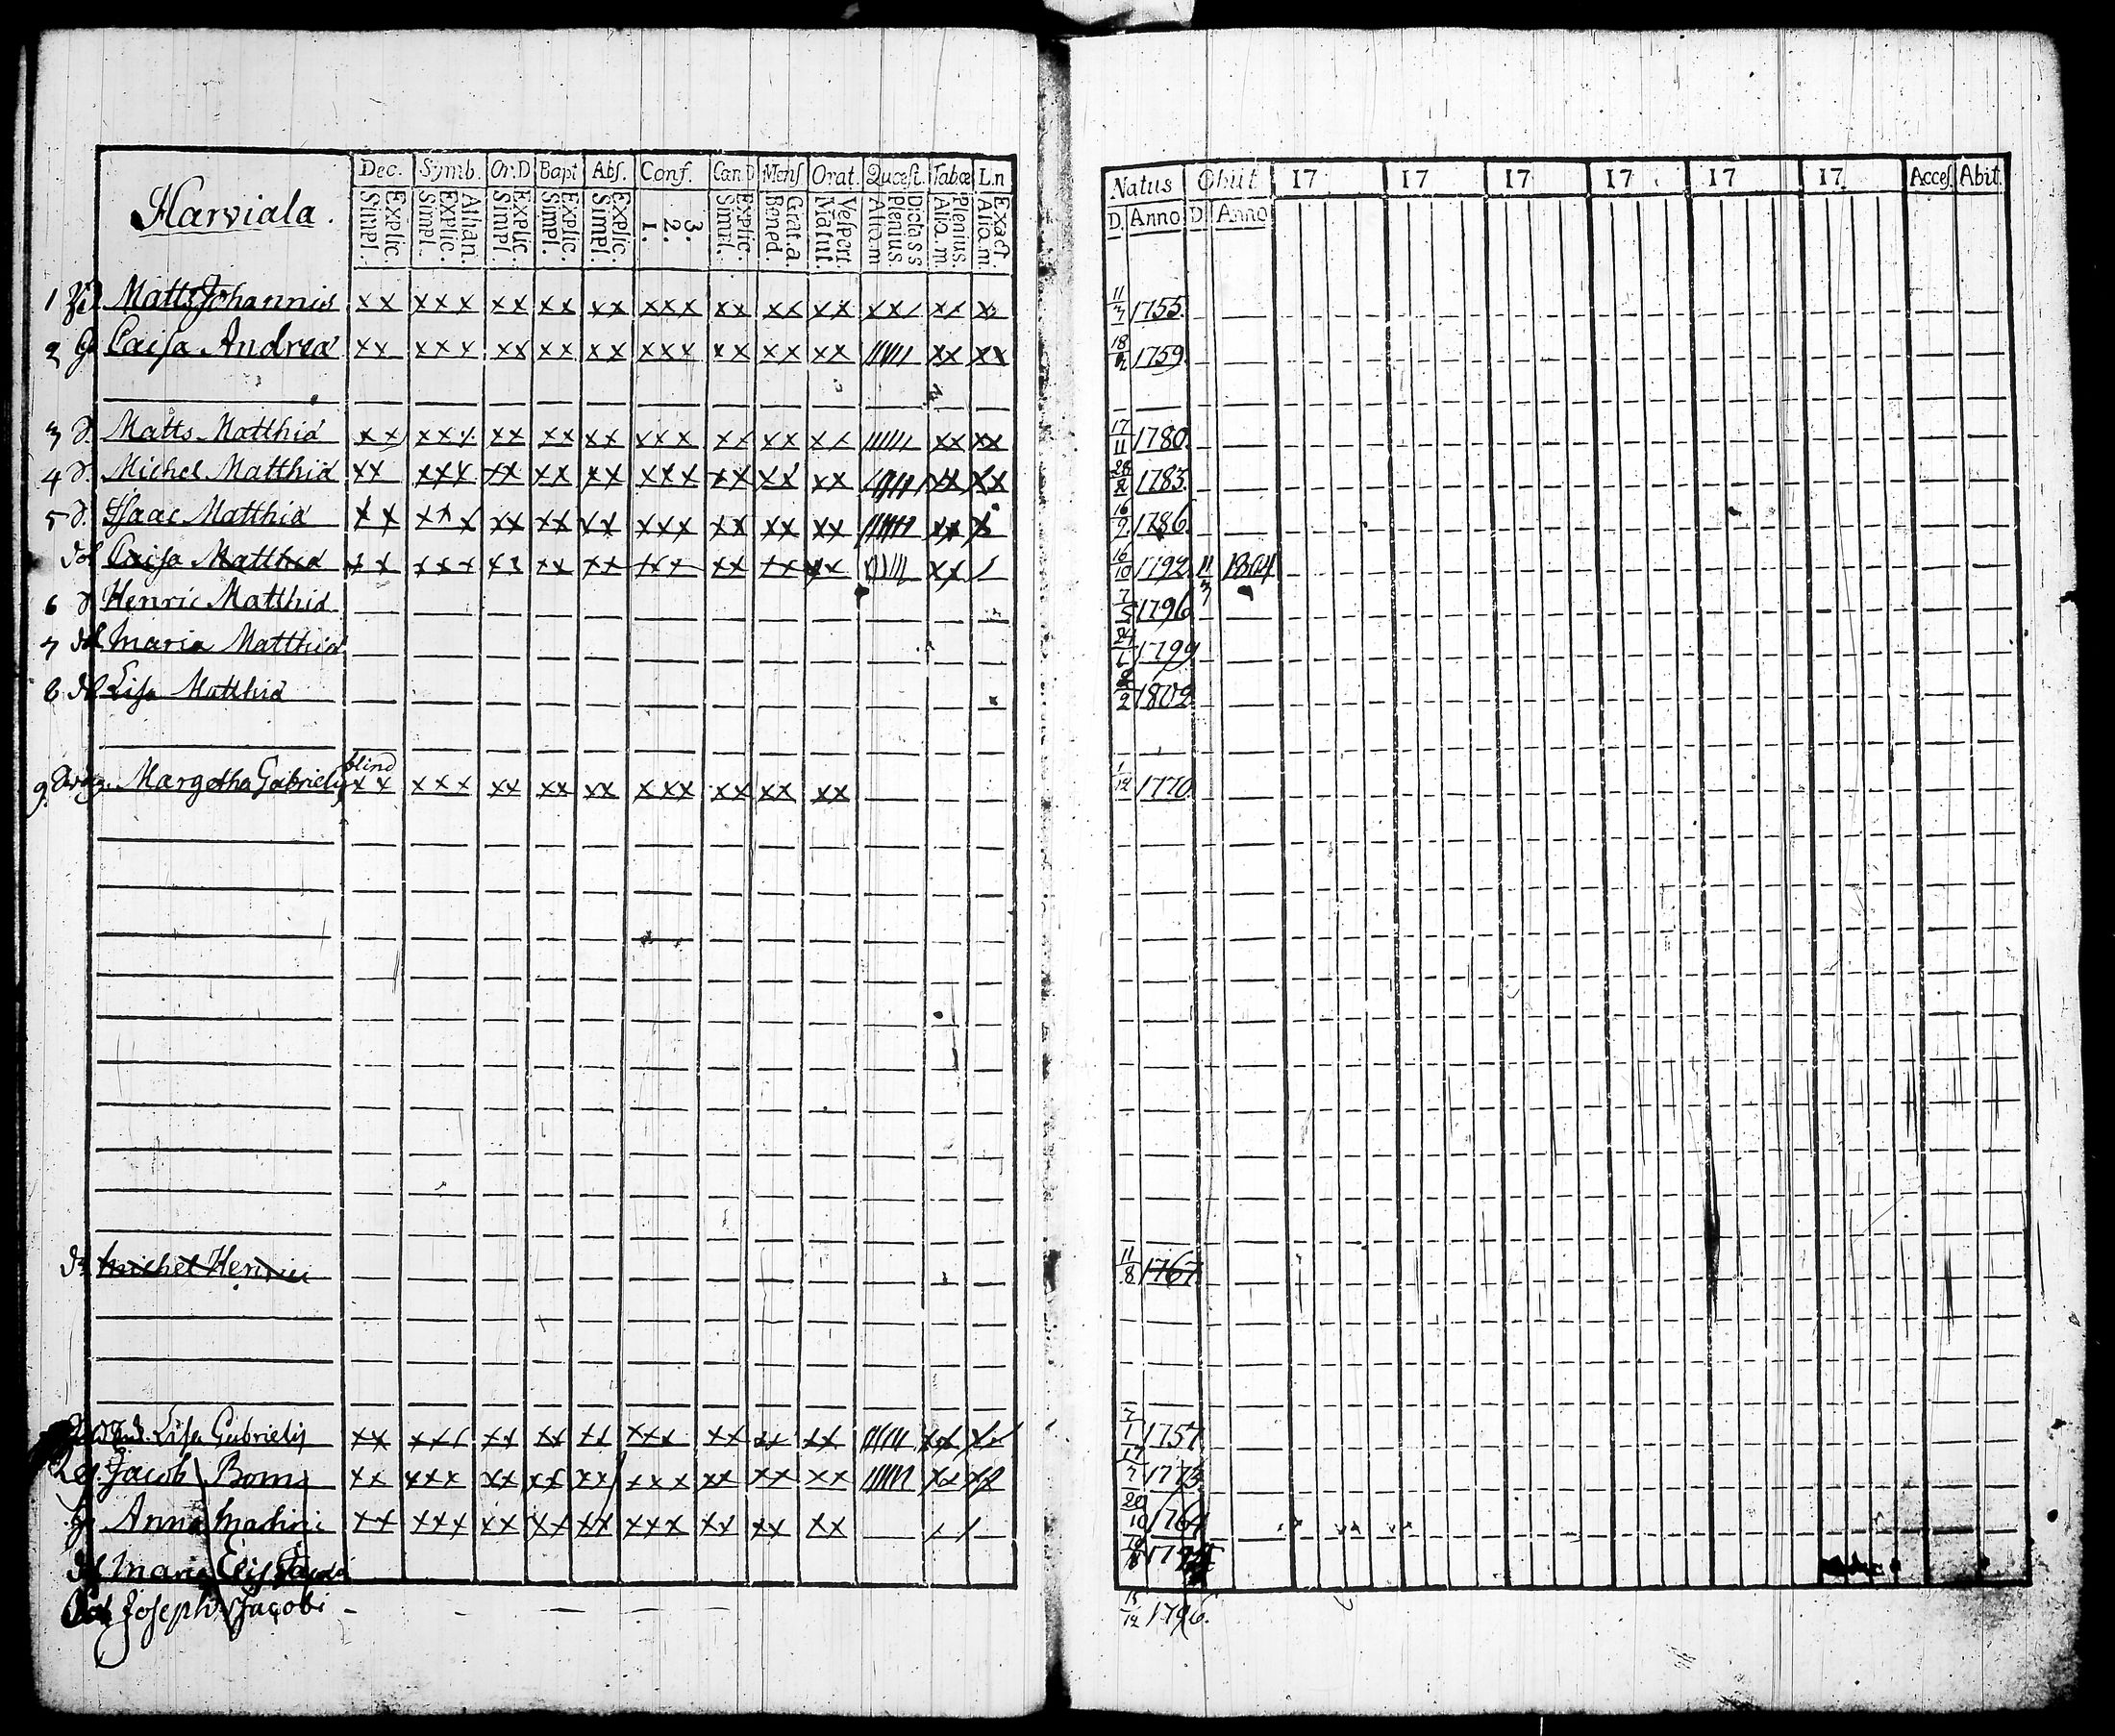 Harviala.
Dec. Symb. Or.D Bapt Abſ. Conf. Can.D Menſ Orat. Quæſt. Tabœ L.n
Explic. Simpl. Athan. Explic. Simpl. Explic. Simpl. Explic. Simpl. Explic. Simpl. 3. 2. 1. Explic. Simpl. Grat.a. Bened. Veſpert. Matut. Dicta S S Plenius. Aliq.m Plenius. Aliq.m. Exact. Aliq.m.
Natus Obiit 17 17 17 17 17 17 Acceſ. Abit.
D. Anno D. Anno
1 Matts Johannis xx xxx xx xx xx xxx xx xx xx xx/ xx x 11/7 1755.
2 Caiſa Andreæ xx xxx xx xx xx xxx xx xx xx ////// xx xx 18/2 1759
3 d. Matts Matthiæ xx xxx xx xx xx xxx xx xx xx ////// xx xx 17/11 1780
4 d. Michel Matthiæ xx xxx xx xx xx xxx xx xx xx xx xx 1783
5 d. Iſaac Matthiæ xx xxx xx xx xx xxx xx xx xx xx x 16/2 1786
dot Caiſa Matthiæ xx xxx xx xx xx xxx xx xx xx xx / 16/10 1792 11/3 1804
6 d Henric Matthiæ 7/5 1796
7 dot Maria Matthiæ 1799
8 dot Liſa Matthiæ 2 1802
blind
9 Margetha Gabrielis xx xxx xx xx xx xxx xx xx xx 1/12 1770
Michel Henrici 11/8 1767
Liſa Gabrielis xx xx/ xx xx xx xxx xx xx xx ////// xx 7/1 1757
Jacob Bom xx xxx xx xx xx xxx xx xx xx ////// xx xx 7 1773
Anna xx xxx xx xx xx xxx xx xx xx / / 20/10 1764
Maria Eliſ
Joseph Jacobi 15/12 1796.